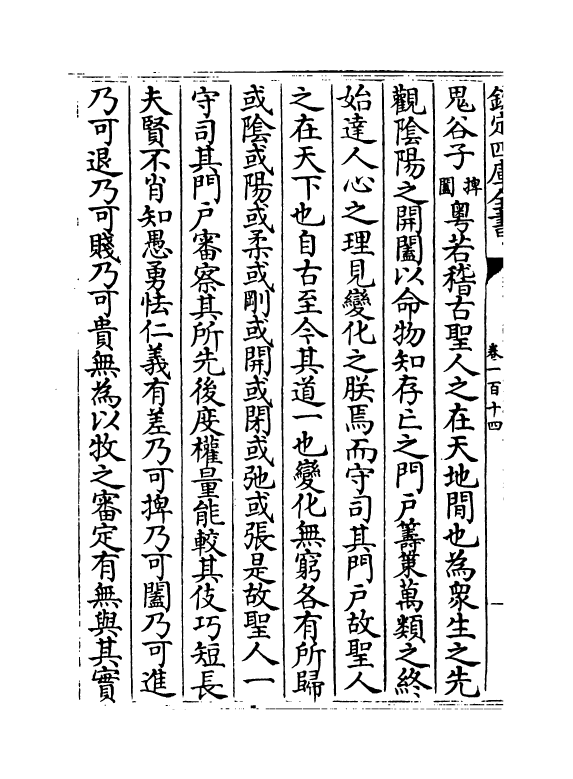 欽定四庫全書
卷一百十四
一
鬼谷子捭闔粤若稽古聖人之在天地間也為衆生之先
觀陰陽之開闔以命物知存亡之門戶籌䇿萬類之終
始達人心之理見變化之朕焉而守司其門戶故聖人
之在天下也自古至今其道一也變化無窮各有所歸
或陰或陽或柔或剛或開或閉或弛或張是故聖人一
守司其門戶審察其所先後度權量能較其伎巧短長
夫賢不肖知愚勇怯仁義有差乃可捭乃可闔乃可進
乃可退乃可賤乃可貴無為以牧之審定有無與其實